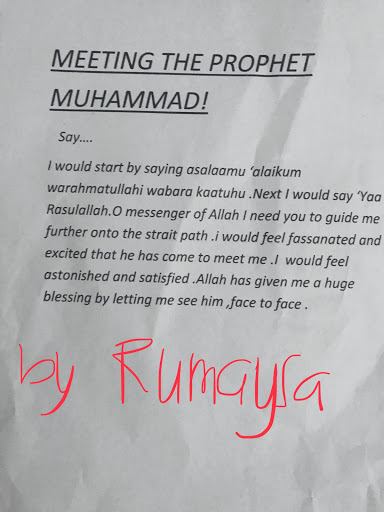 MEETING THE PROPHET
MUHAMMAD!
Say....
I would start by saying asalaamu ‘alaikum
warahmatullahi wabara kaatuhu .Next I would say ‘Yaa
Rasulallah.O messenger of Allah I need you to guide me
further onto the strait path .i would feel fassanated and
excited that he has come to meet me .I  would feel
astonished and satisfied .Allah has given me a huge
blessing by letting me see him ,face to face .
by Rumaysa